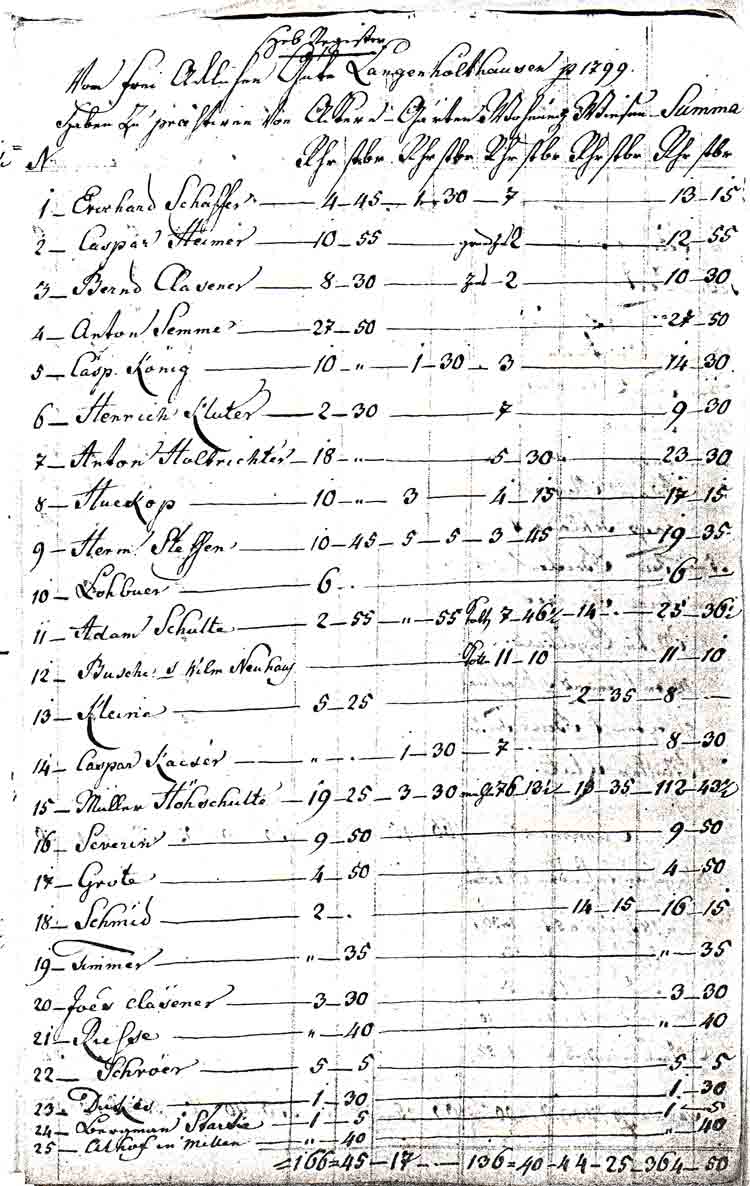 Heb Register
Vom frei Adlichen Gute Langenholthausen p 1799.
Haben zu prästiren von Ackern - Gärten Wohnung Wiesen - Summa
N Rhr stbr Rhr stbr Rhr stbr Rhr stbr Rhr stbr
1 - Everhard Schäffer - 4 - 45 - 1 - 30 - 7 13 - 15
2 - Caspar Heimer - 10 - 55 - 2 - 12 - 55
3 - Bernd Clasener - 8 - 30 2 - 10 - 30
4 - Anton Semme - 27 - 50 - 27 - 50
5 - Casp. König - 10 - „ - 1 - 30 - 3 14 - 30
6 - Henrich Kluter - 2 - 30 7 9 30
7 - Anton Holtrichter - 18 - „ - 5 - 30 23 - 30
8 - Hueckop - 10 - „ - 3 4 - 15 17 - 15
9 - Herm Steffen - 10 - 45 - 5 - 5 - 3 - 45 - 19 - 35
10 - Lohbuer - 6 - 6 -
11 - Adam Schulte - 2 - 55 - „ - 55 7 - 46½ - 14 - 25 - 36½
12 - Busche s Wilm Neuhaus - 11 - 10 - 11 - 10
13 - Kleine - 5 - 25 2 - 35 - 8 -
14 - Caspar Kaeser - „ - 1 - 30 - 7 - 8 - 30
15 - Müller Höhschulte - 19 - 25 - 3 - 30 76 13½ - 13 - 35 - 112 - 43½
16 - Severin - 9 - 50 - 9 - 50
17 - Grote - 4 - 50 - 4 - 50
18 - Schmid - 2 - . 14 - 15 - 16 - 15
19 - Timmer - „ - 35 - „ - 35
20 - Joes Clasener - 3 - 30 - 3 - 30
21 - Ruesse - „ - 40 - „ - 40
22 - Schröer - 5 - 5 - 5 - 5
23 - 1 - 30 - 1 - 30
24 - Bergman - 1 - 5 - 1 - 5
25 - Althof in Mellen - „ - 40 - „ - 40
= 166 = 45 - 17 - . - 136 = 40 - 44 - 25 - 364 - 50